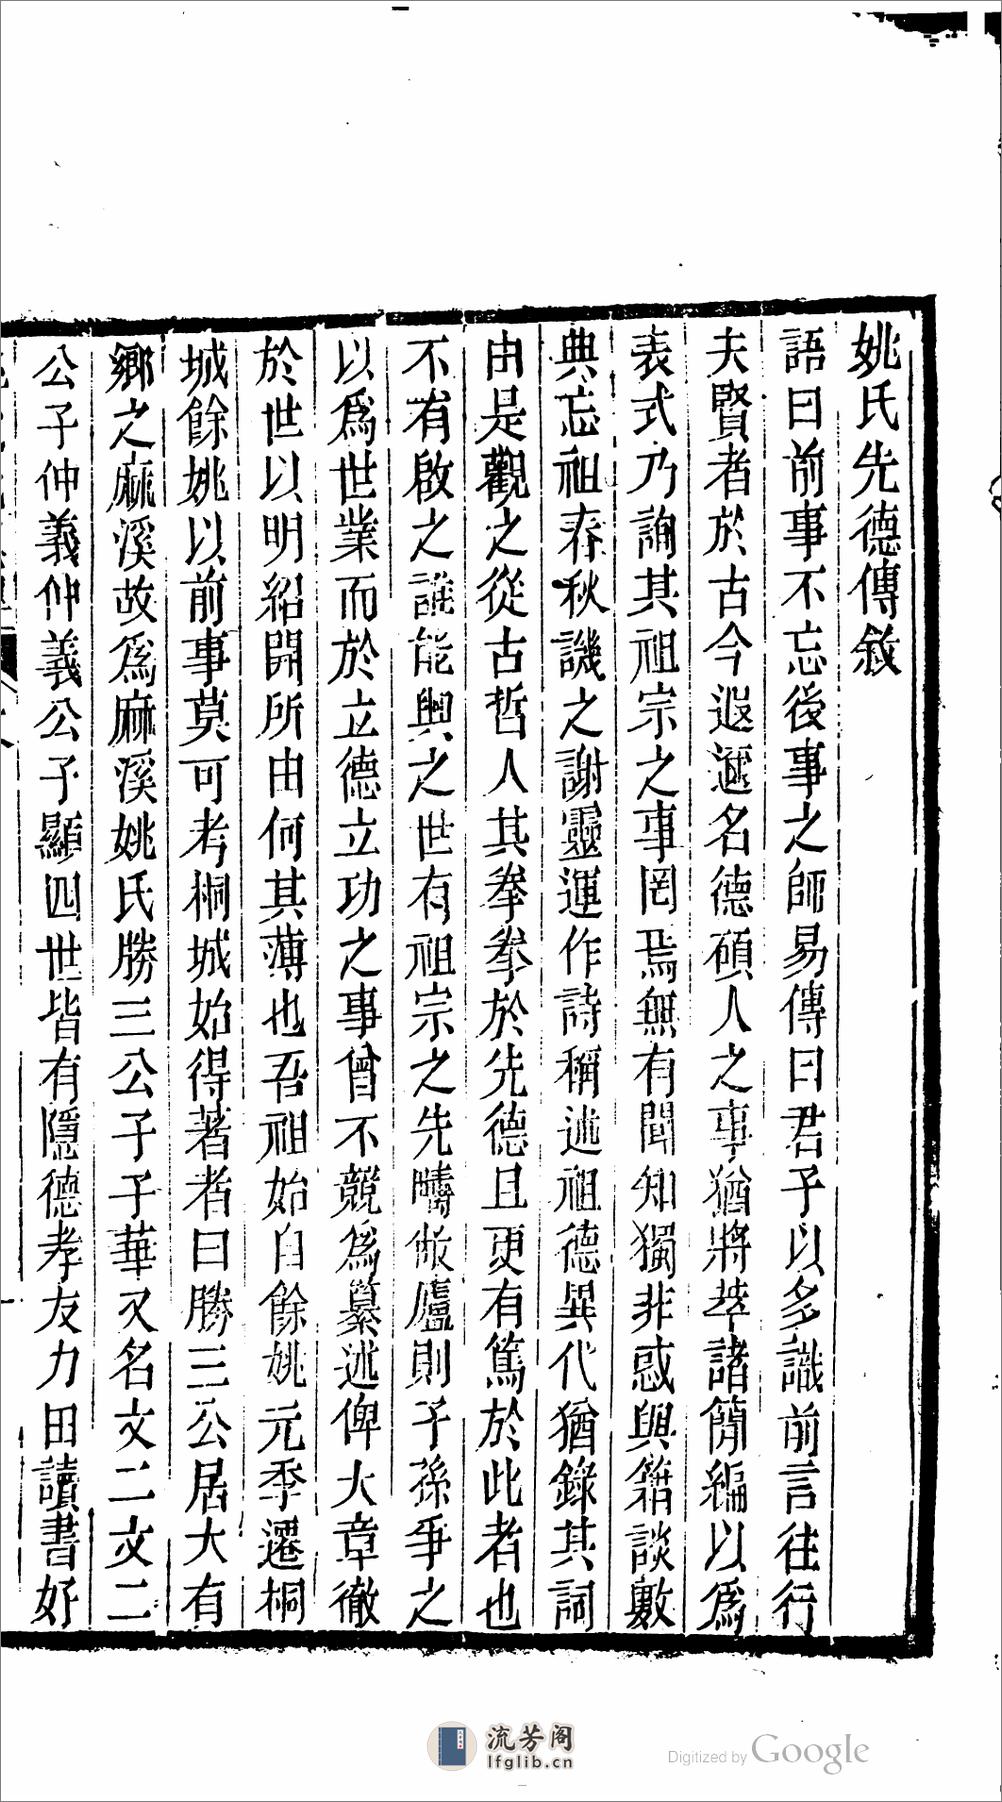 姚氏先德傳敘
語曰前事不忘後事之師易傳曰君子以多識前言往行
夫賢者於古今遐邇名德碩人之事猶將萃諸簡編以為
表式乃詢其祖宗之事罔焉無有聞知獨非惑與籍談數
典忘祖春秋譏之謝靈運作詩稱述祖德異代猶錄其詞
由是觀之從古哲人其拳拳於先德且更有篤於此者也
不有啟之誰能興之世有祖宗之先疇敝廬則子孫爭之
以為世業而於立德立功之事曾不競為纂述俾大章徹
於世以明紹開所由何其薄也吾祖始自餘姚元季遷桐
城餘姚以前事莫可考桐城始得著者曰勝三公居大有
鄉之麻溪故為麻溪姚氏勝三公子子華又名文二文二
公子仲義仲義公子顯四世皆有隱德孝友力田讀書好
流芳阁
lfglib.cn
Digitized by Google